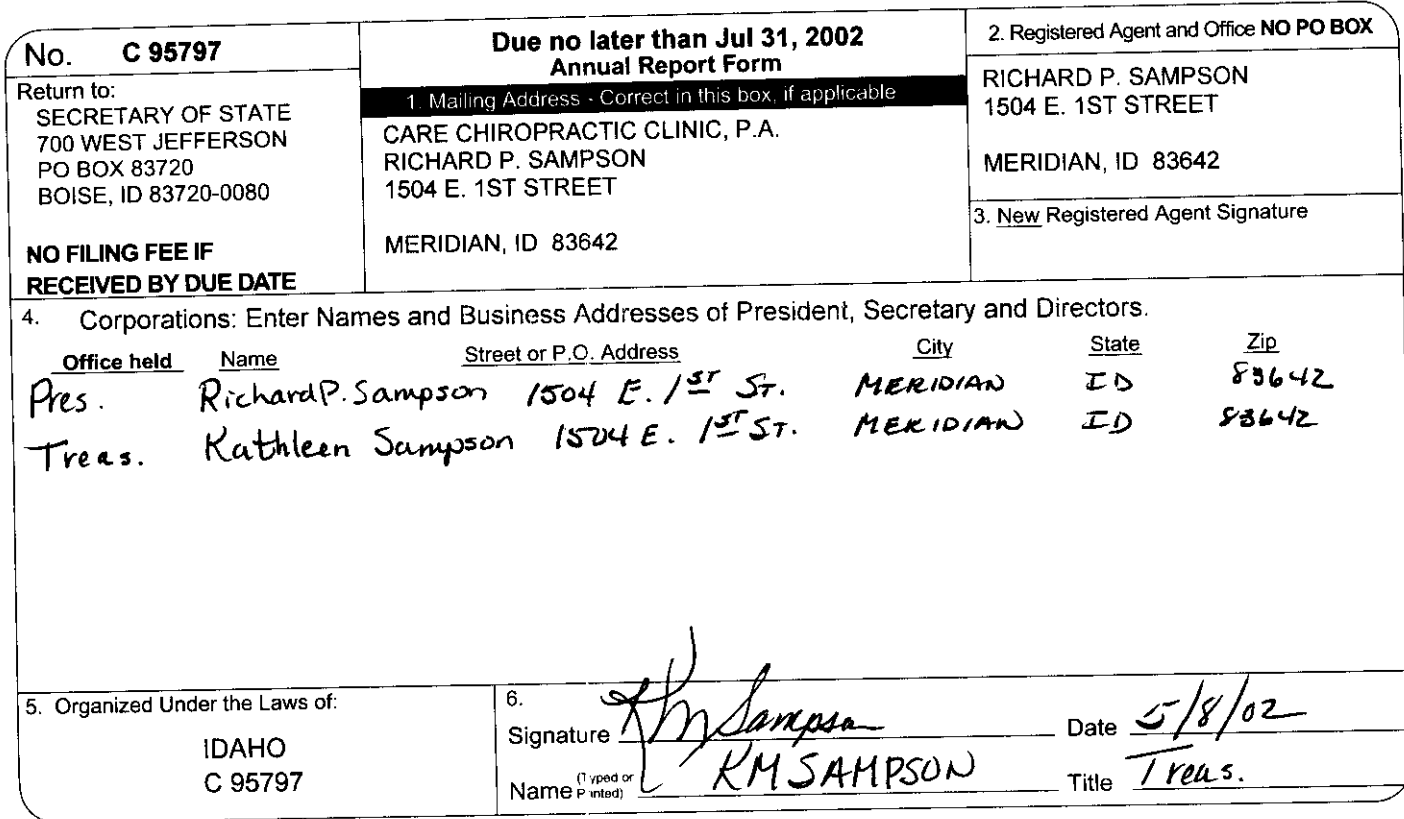 No. C 95797
Return to:
SECRETARY OF STATE
700 WEST JEFFERSON
PO BOX 83720
BOISE, ID 83720-0080
NO FILING FEE IF
RECEIVED BY DUE DATE
Due no later than Jul 31, 2002
Annual Report Form
1. Mailing Address - Correct in this box, if applicable
CARE CHIROPRACTIC CLINIC, P.A.
RICHARD P. SAMPSON
1504 E. 1ST STREET
MERIDIAN, ID 83642
2. Registered Agent and Office NO PO BOX
RICHARD P. SAMPSON
1504 E. 1ST STREET
MERIDIAN, ID 83642
3. New Registered Agent Signature
4. Corporations: Enter Names and Business Addresses of President, Secretary and Directors.
Office held Name Street or P.O. Address City State Zip
Pres. Richard P. Sampson 1504 E. 1ST ST. MERIDIAN ID 83642
Treas. Kathleen Sampson 1504 E. 1ST ST. MERIDIAN ID 83642
5. Organized Under the Laws of:
IDAHO
C 95797
6.
Signature KM Sampson Date 5/8/02
Name (Typed or Printed) KM SAMPSON Title Treas.